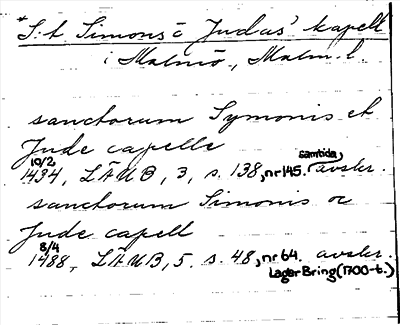 *S:t Simons o Judas' kapell
i Malmö, Malm. l.
sanctorum Symonis et
Jude capelle
10/2
1494, LÄUB, 3, s. 138, nr 145. samtida avskr.
sanctorum Simonis oc
Jude capell
8/4
1488, LÄUB, 5. s. 48, nr 64. avskr.
Lager Bring (1700-t.)